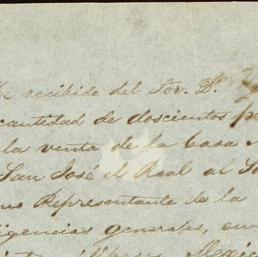 recibido del Sor. D.
cantidad de doscientos
la venta de la Casa
San José el Real al
Representante de la
igencias generales, en